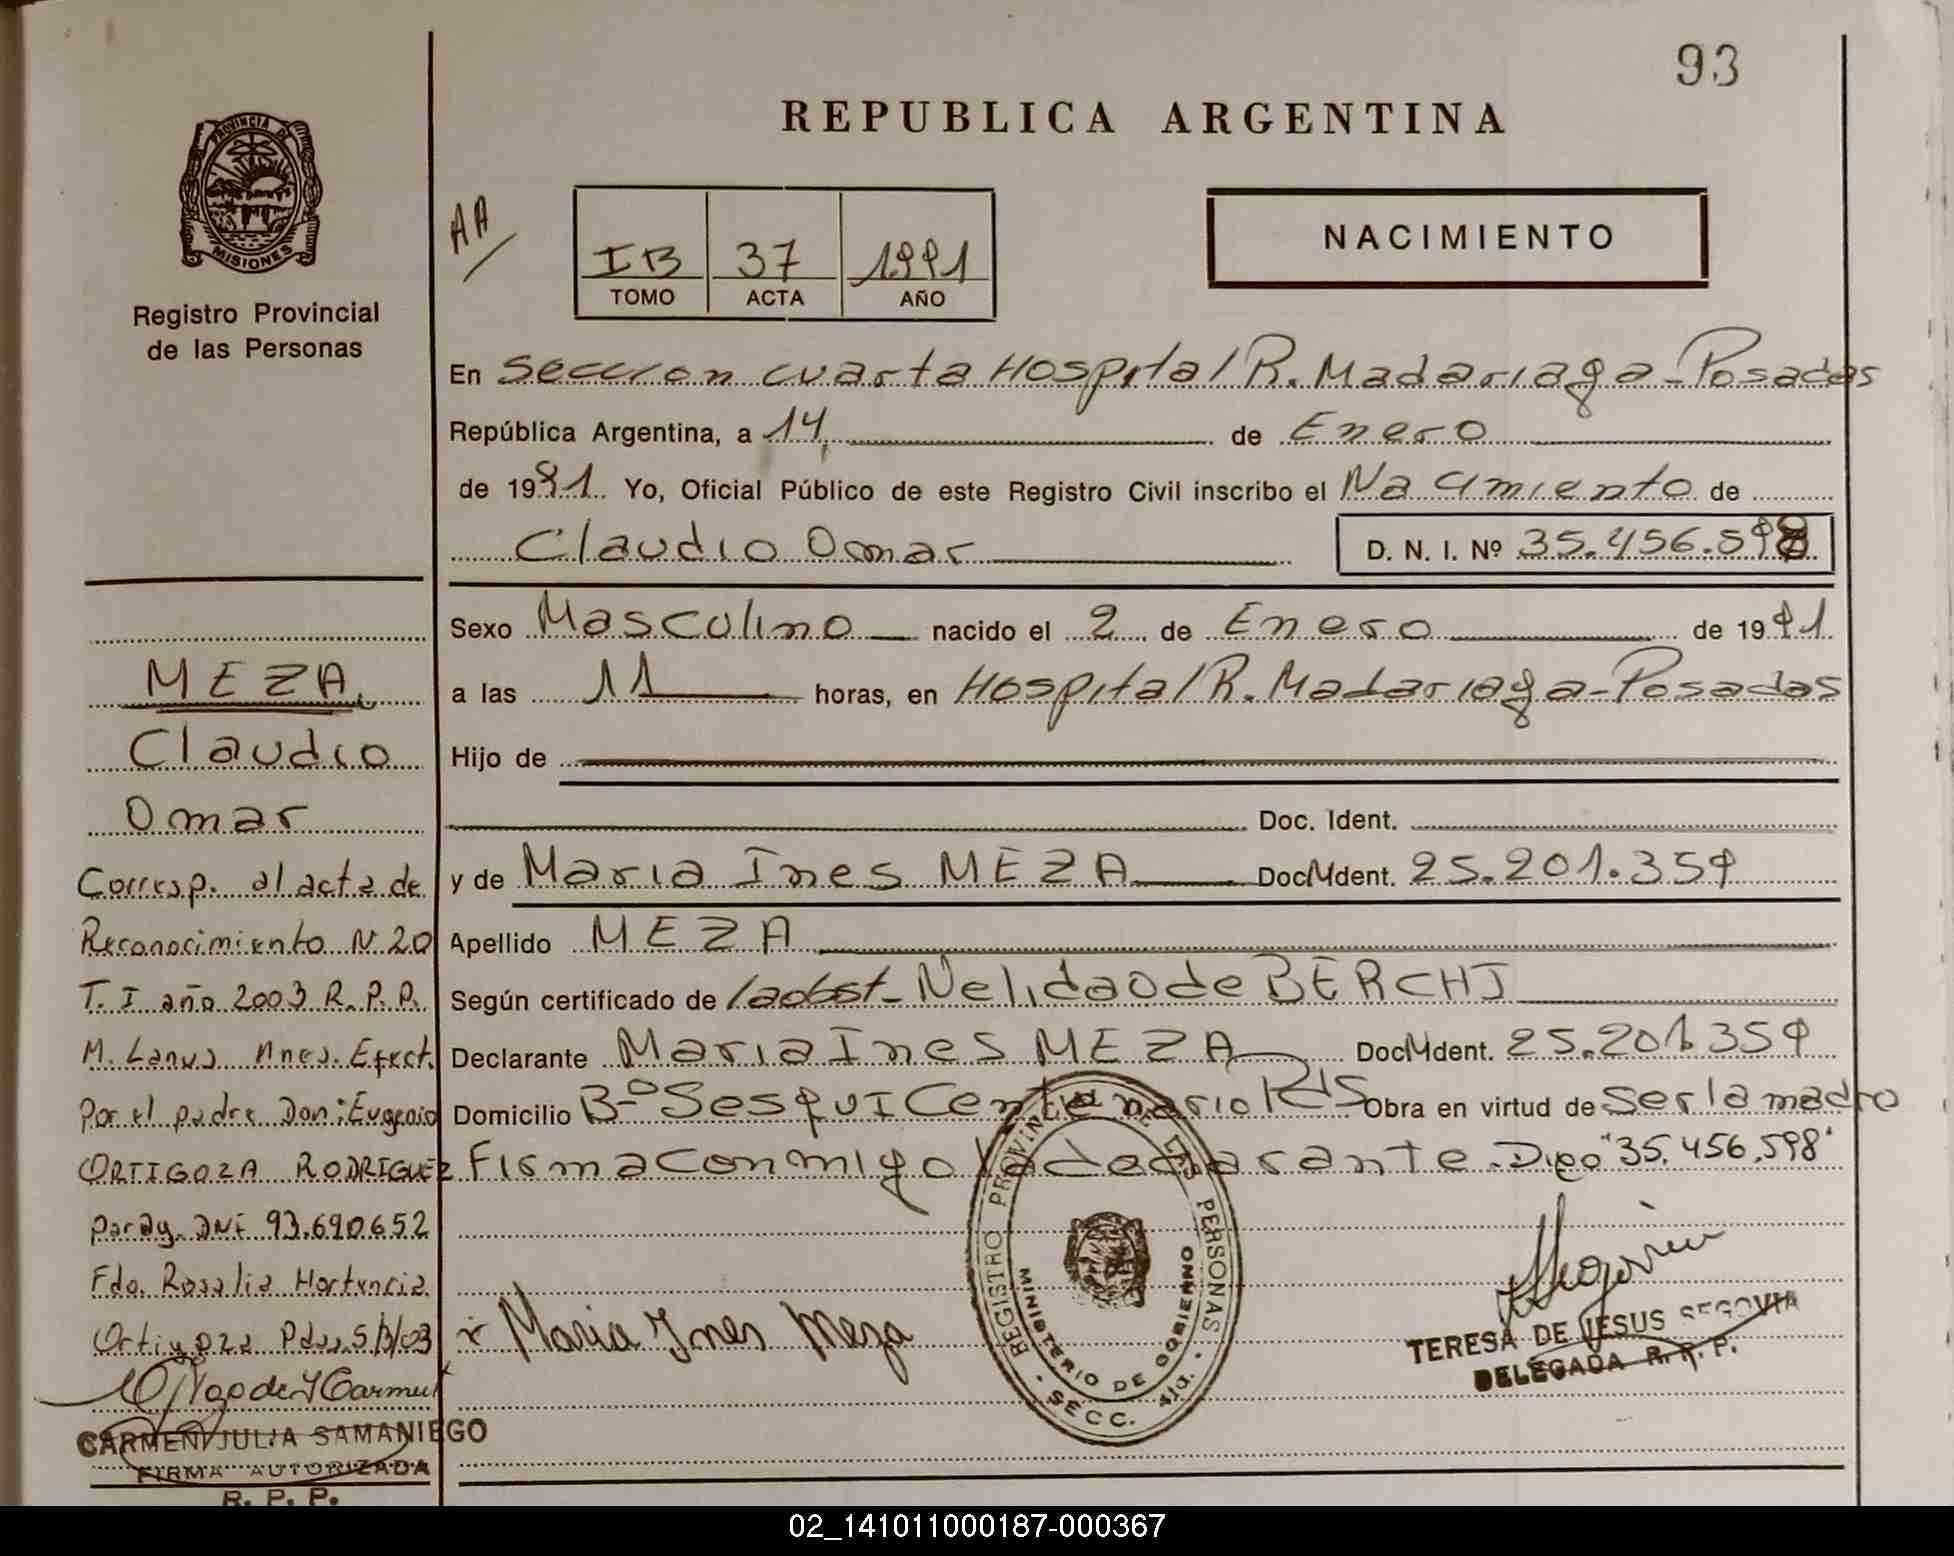 93
REPUBLICA ARGENTINA
PROVINCIA DE
MISIONES
Registro Provincial
de las Personas
AA
IB 37 1991
TOMO ACTA AÑO
NACIMIENTO
En Sección cuarta Hospital R. Madariaga - Posadas
República Argentina, a 14, de Enero
de 1991 Yo, Oficial Público de este Registro Civil inscribo el Nacimiento de
Claudio Omar
D. N. I. Nº 35.456.598
Sexo Masculino nacido el 2 de Enero de 1991
a las 11 horas, en Hospital R. Madariaga - Posadas
Hijo de
Doc. Ident.
y de Maria Ines MEZA Doc. Ident. 25.201.359
Apellido MEZA
Según certificado de la obst. Nelida O de BERCHI
Declarante Maria Ines MEZA Doc. Ident. 25.201.359
Domicilio Bº Sesqui Centenario Pds Obra en virtud de ser la madre
Firma conmigo la declarante. Digo "35.456.598"
Maria Ines Meza
REGISTRO PROVINCIAL DE LAS PERSONAS
MINISTERIO DE GOBIERNO
SECC. 4ta.
TERESA DE JESUS SEGOVIA
DELEGADA R. P. P.
MEZA
Claudio
Omar
Corresp. al acta de
Reconocimiento N. 20
T. I año 2003 R. P. P.
M. Lanus Efect.
Por el padre Don: Eugenio
ORTIGOZA RODRIGUEZ
parag. DNI 93.690652
Fdo. Rosalia Hortencia
Ortigoza Pdas 5/3/03
CARMEN JULIA SAMANIEGO
FIRMA AUTORIZADA
R. P. P.
02_141011000187-000367